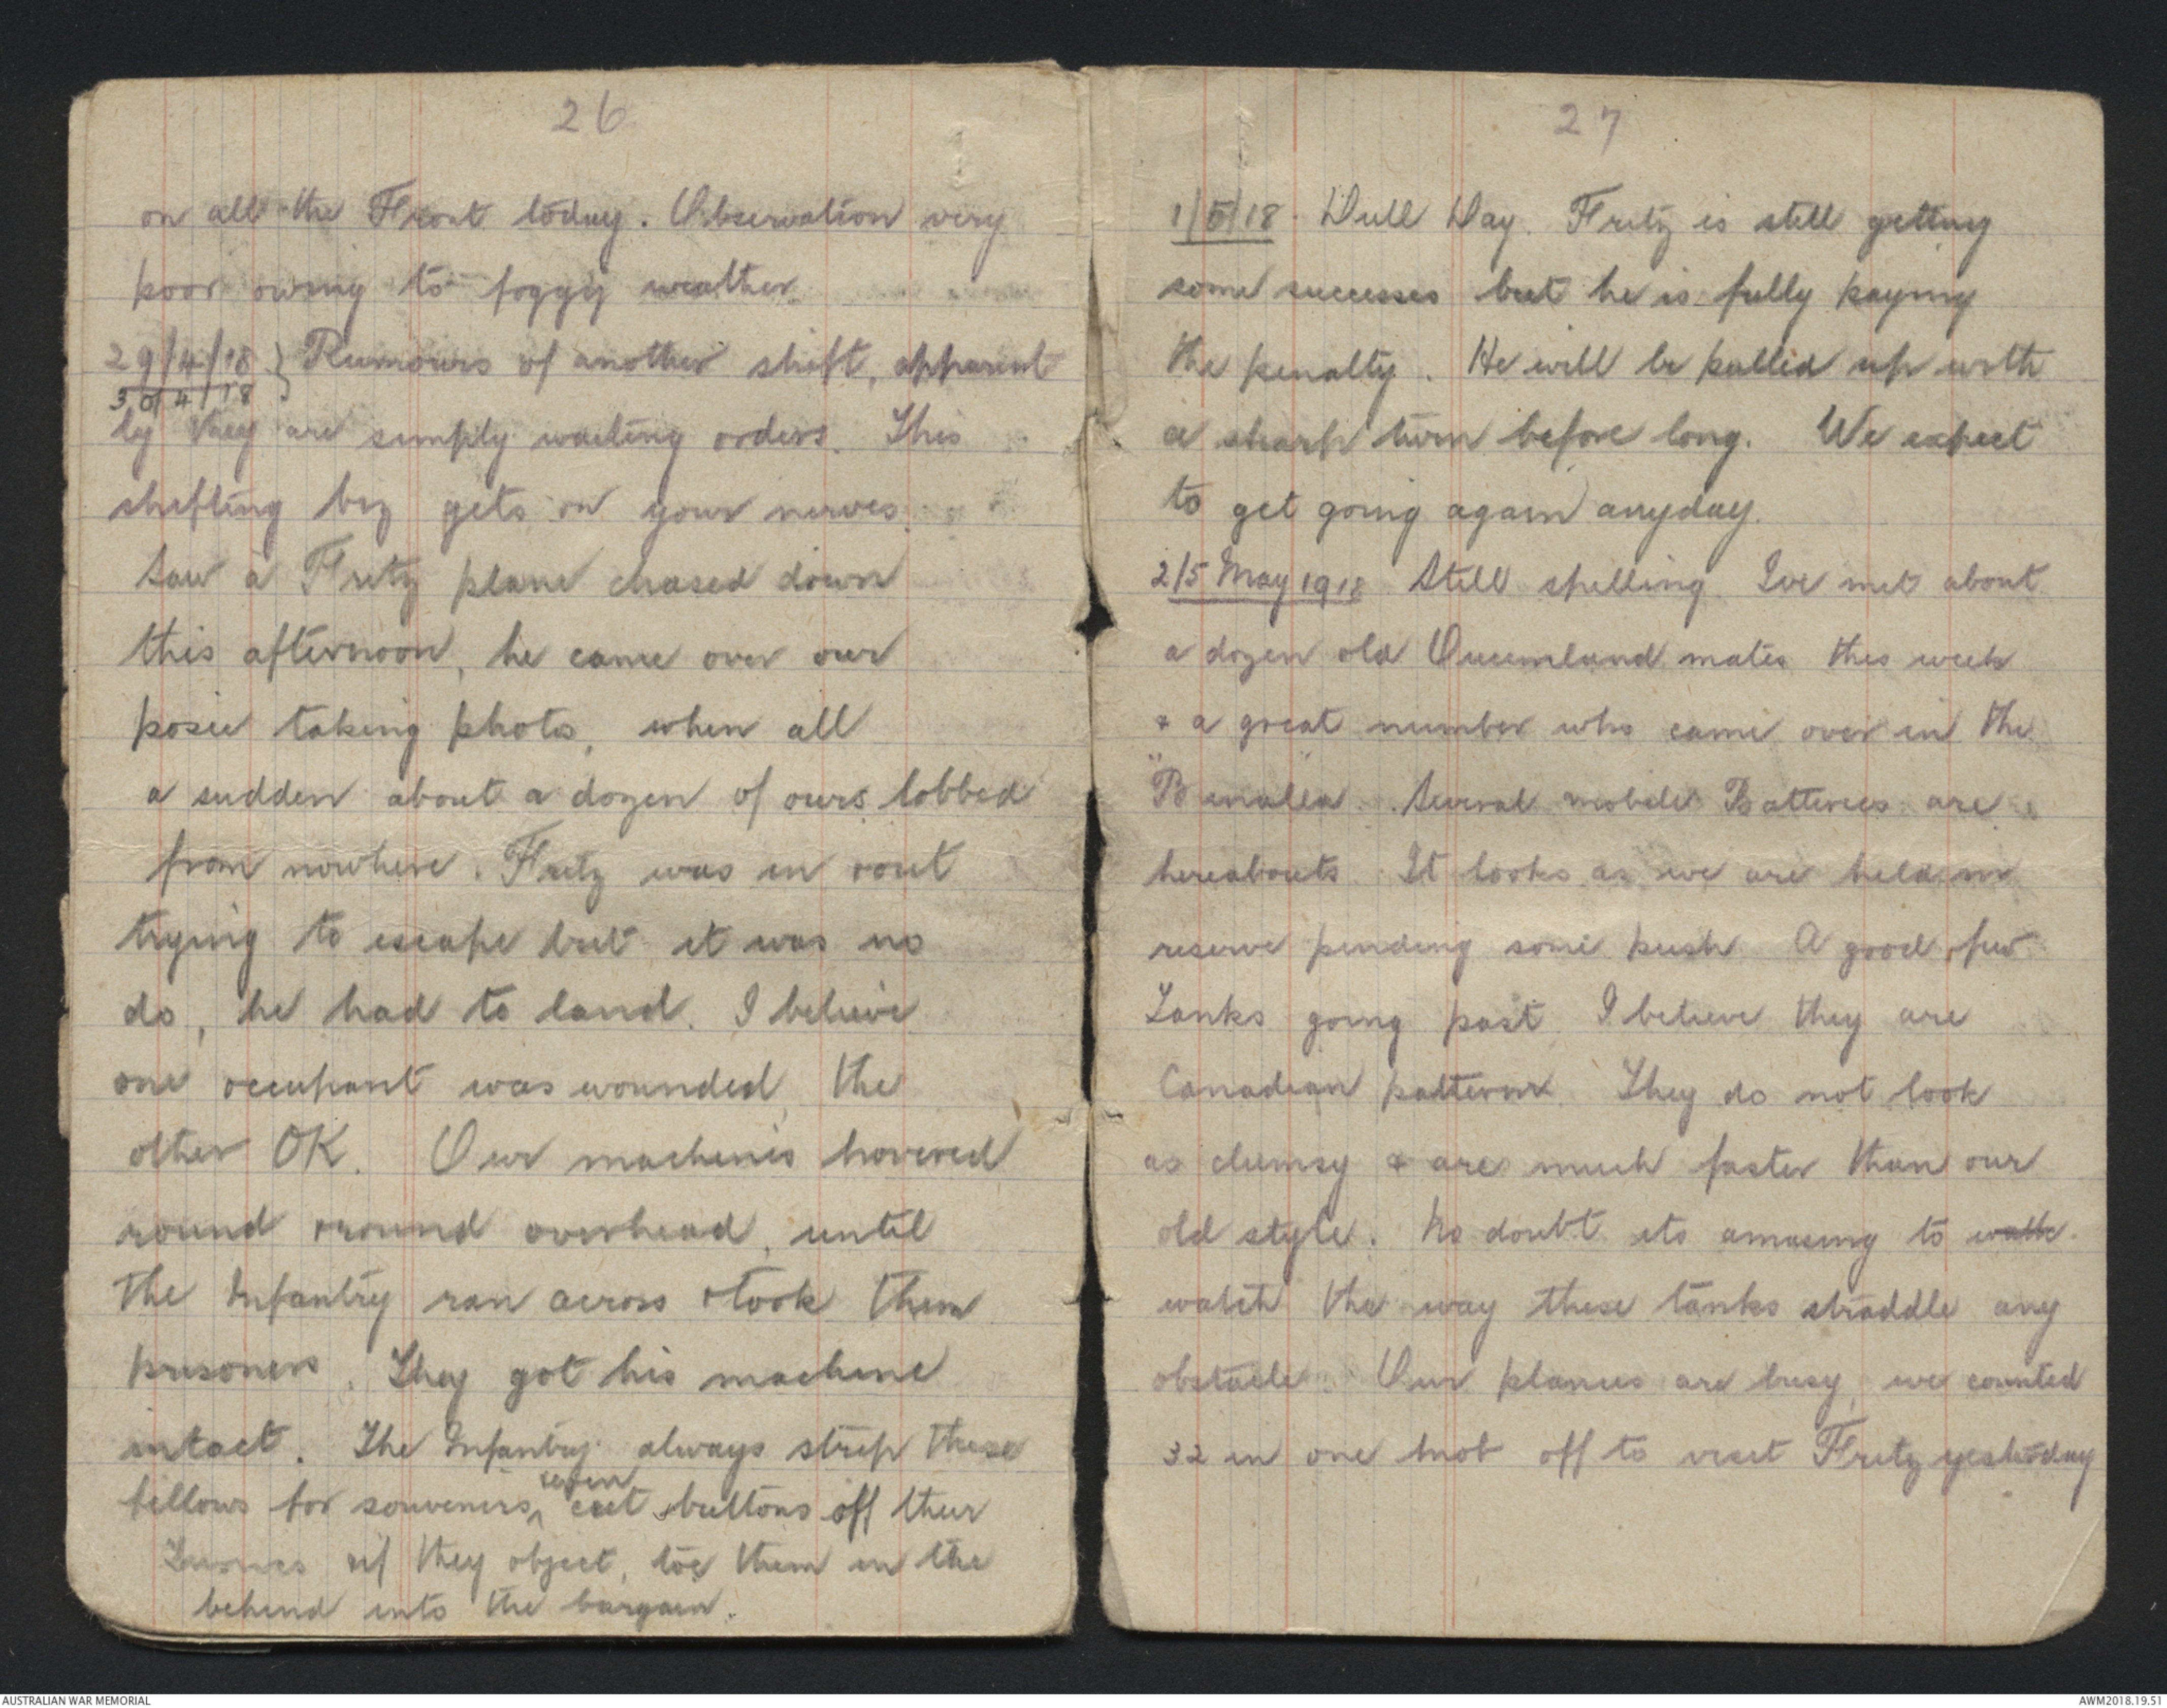 26
on all the Front today. Observation very
poor owing to foggy weather.
29/4/18 } Rumours of another shift, apparent
30/4/18
ly they are simply waiting orders. This
shifting biz gets on your nerves.
Saw a Fritz plane chased down
this afternoon, he came over our
posie taking photos, when all
a sudden about a dozen of ours lobbed
from nowhere. Fritz was in rout
trying to escape but it was no
do, he had to land. I believe
one occupant was wounded, the
other OK. Our machines hovered
round & round overhead, until
the Infantry ran across & took them
prisoners. They got his machine
intact. The Infantry always strip these
fellows for souvenirs, cut buttons off their
& if they object, toe them in the
behind into the bargain.
27
1/5/18. Dull Day. Fritz is still getting
some successes but he is fully paying
the penalty. He will be pulled up with
a sharp turn before long. We expect
to get going again anyday.
2/5 May 1918 Still spelling. Ive met about
a dozen old Queensland mates this week
& a great number who came over in the
"Benalla". Several mobile Batteries are
hereabouts. It looks as we are held in
reserve pending some push. A good few
Tanks going past. I believe they are
Canadian pattern. They do not look
as clumsy & are much faster than our
old style. No doubt its amusing to walk
watch the way these tanks straddle any
obstacle. Our planes are busy, we counted
32 in one mob off to visit Fritz yesterday
AUSTRALIAN WAR MEMORIAL
AWM2018.19.51